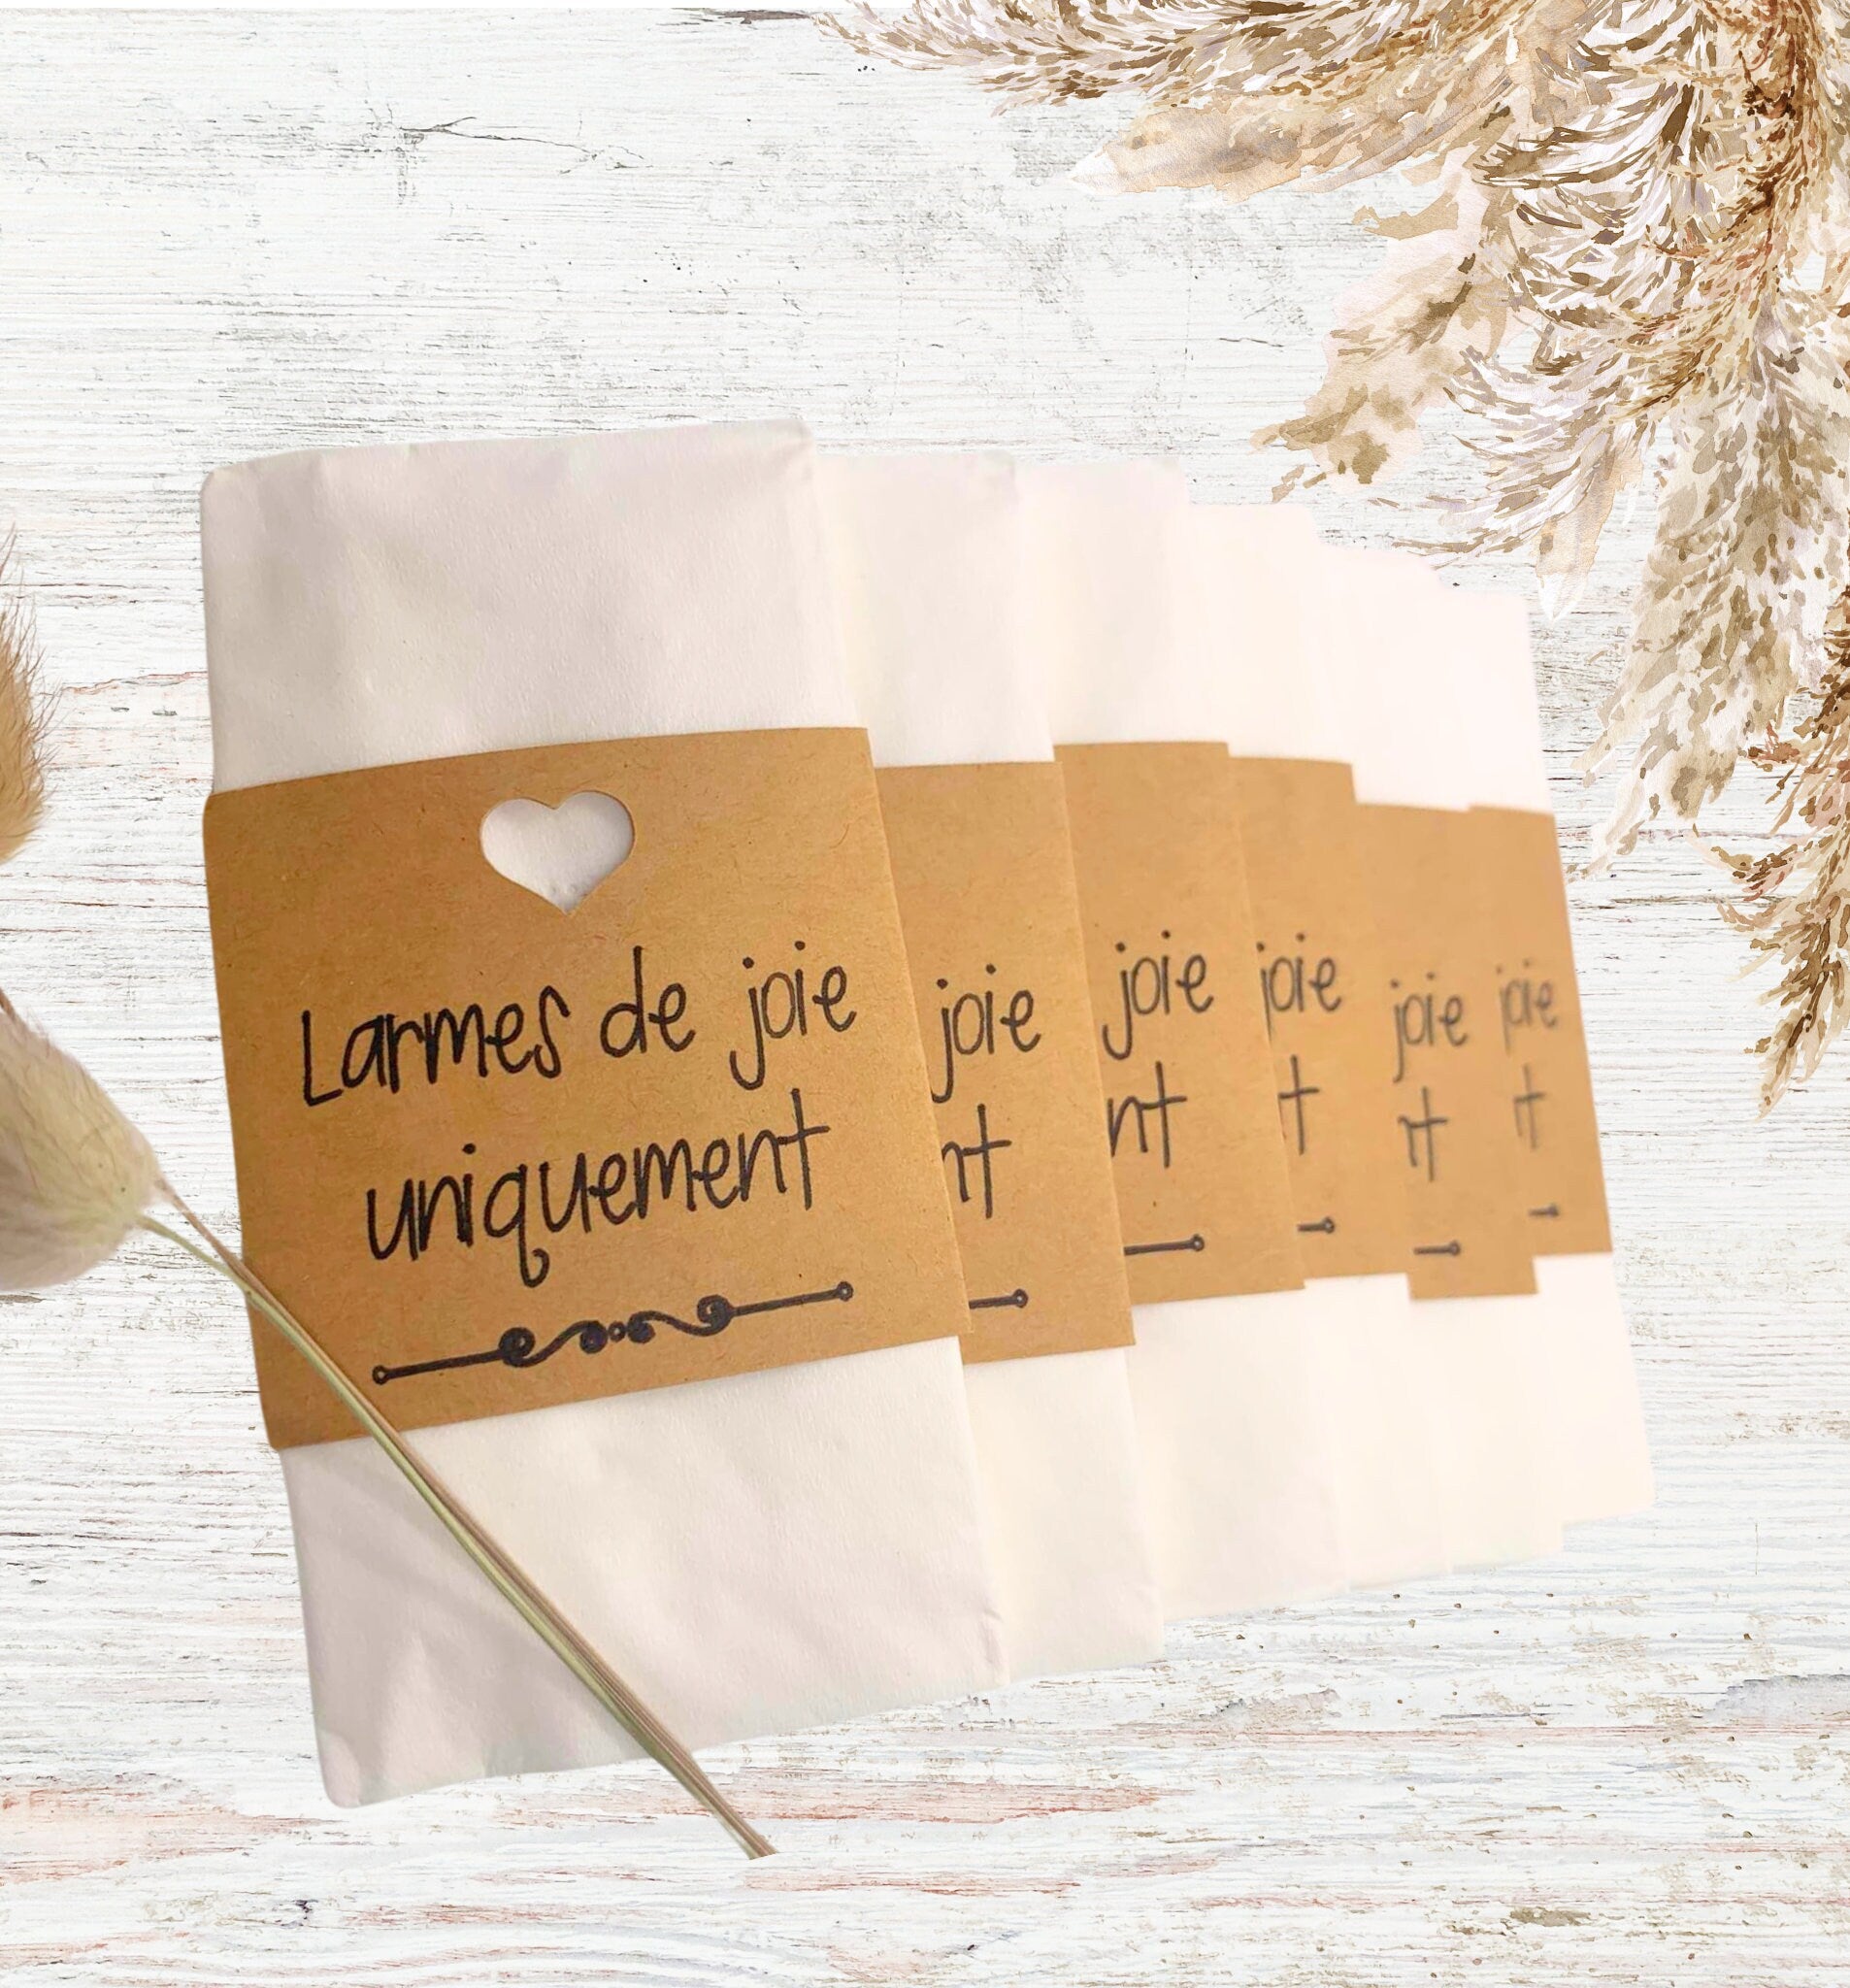 Larmes de joie
uniquement
joie
nt
joie
nt
joie
t
joie
rt
joie
t